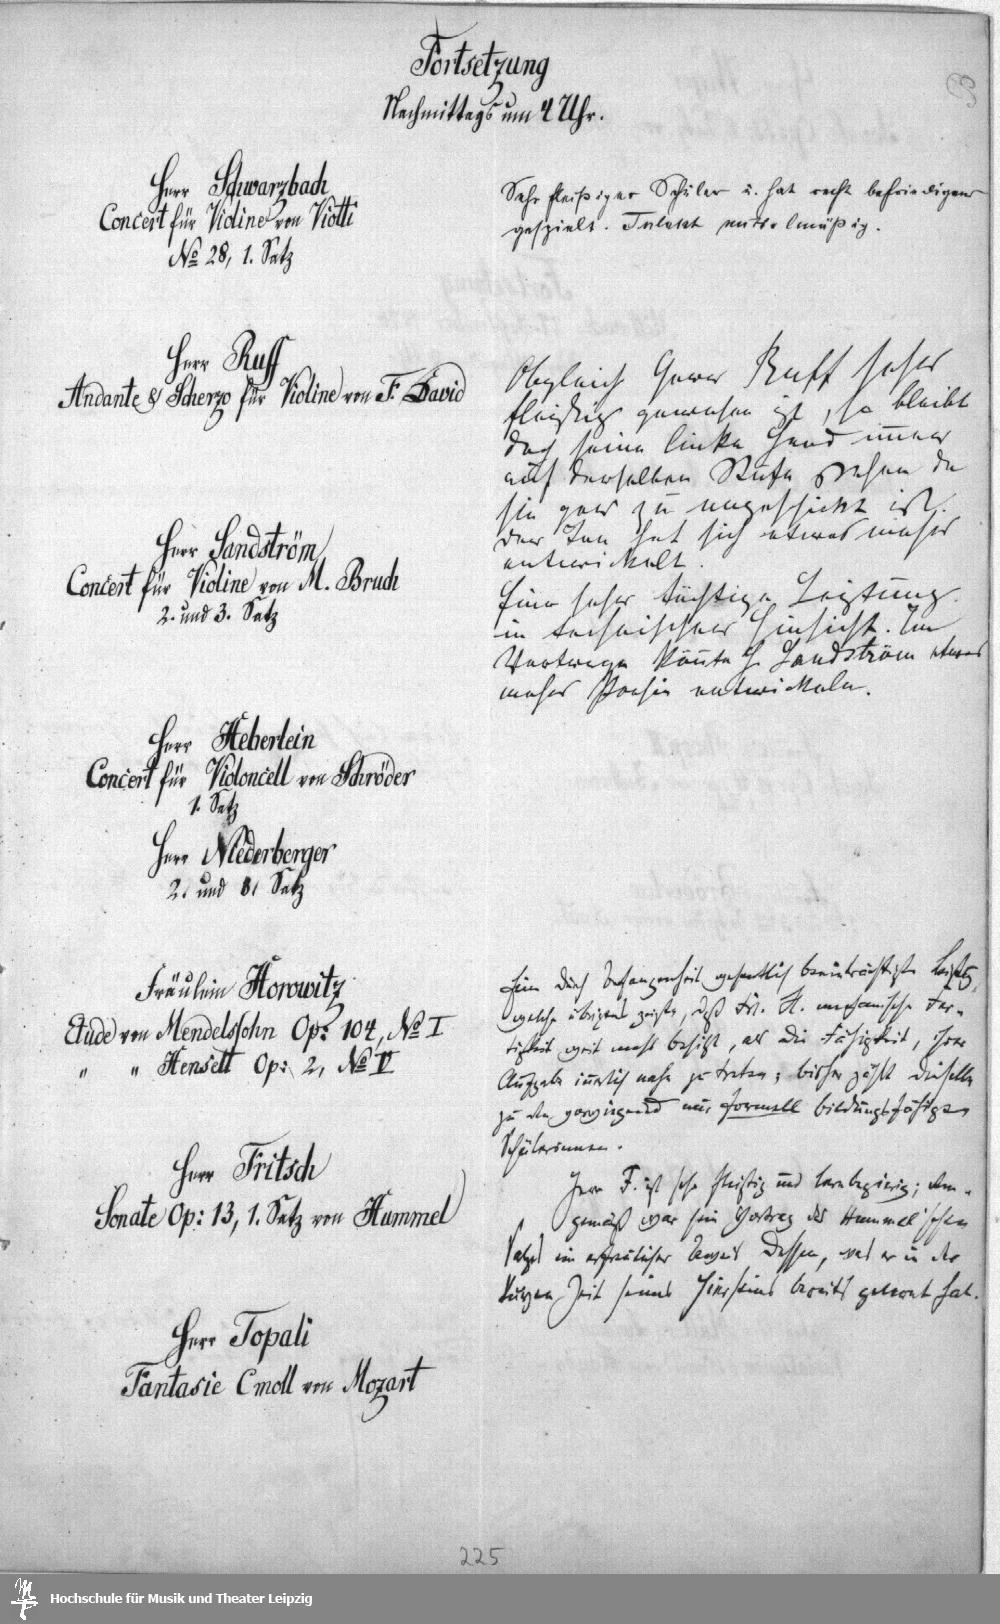 Fortsetzung
Nachmittags um 4 Uhr.
Herr Schwarzbach
Concert für Violine von Viotti
No 28, 1. Satz
Sehr fleißiger Schüler u. hat recht befriedigend
gespielt. Talent mittelmäßig.
Herr Ruff
Andante & Scherzo für Violine von F. David
Obgleich Herr Ruff sehr
fleißig gewesen ist, so bleibt
doch seine linke Hand immer
auf derselben Stufe stehen da
sie gar zu ungeschickt ist.
der Ton hat sich etwas mehr
entwickelt.
Herr Sandström
Concert für Violine von M. Bruch
2. und 3. Satz
Eine sehr tüchtige Leistung
in technischer Hinsicht. Im
Vortrage könnte H. Sandström etwas
mehr Poesie entwickeln.
Herr Heberlein
Concert für Violoncell von Schröder
1. Satz
Herr Niederberger
2. und 3. Satz
Fräulein Horowitz
Etude von Mendelssohn Op: 104, No I
" " Henselt Op: 2, No IV
Eine durch Befangenheit wesentlich beeinträchtigte Leistg,
welche übrigens zeigte, daß Frl. H. mechanische Fer-
tigkeit weit mehr besitzt, als die Fähigkeit, ihrer
Aufgabe innerlich nahe zu treten; bisher zählt dieselbe
zu den vorwiegend nur formell bildungsfähigen
Schülerinnen.
Herr Fritsch
Sonate Op: 13, 1. Satz von Hummel
Herr F. ist sehr fleißig und lernbegierig; dem-
gemäß war sein Vortrag des Hummel'schen
Satzes ein erfreulicher Beweis dessen, was er in der
kurzen Zeit seines Hierseins bereits gelernt hat.
Herr Topali
Fantasie C moll von Mozart
225
Hochschule für Musik und Theater Leipzig